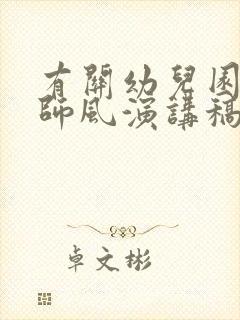 有關幼兒園
師風演講稿
卓文彬